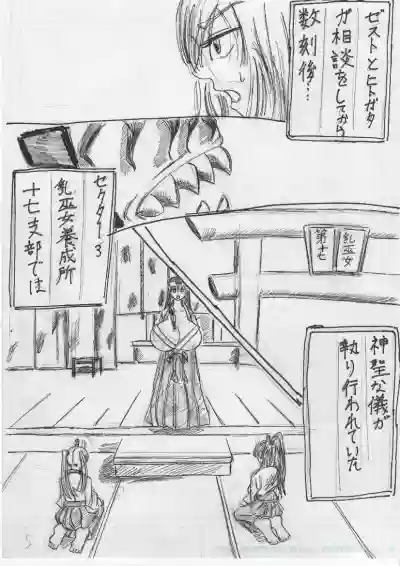 ゼストとヒトガタ
が相談をしてから
数刻後…
セクター3
乱巫女養成所
十七支部では
乱巫女
第十七
神聖な儀が
執り行われていた
5